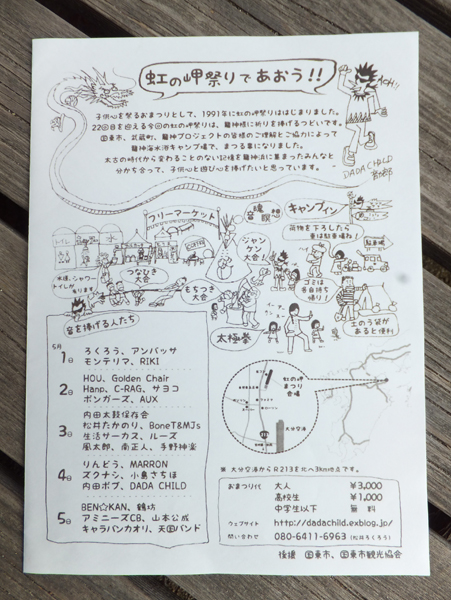 虹の岬祭りであおう!!
子供心を祭るおまつりとして、1991年に虹の岬祭りははじまりました。
22回目を迎える今回の虹の岬祭りは、龍神様に祈りを捧げるつどいです。
国東市、武蔵町、龍神プロジェクトの皆様のご理解とご協力によって
龍神海水浴キャンプ場で、まつる事になりました。
太古の時代から変わることのない記憶を龍神浜に集まったみんなと
分かち合って、子供心と遊び心を捧げたいと思っています。
DADA CHILD
フリーマーケット
キャンプイン
荷物を下ろしたら
車は駐車場ね!
駐車場
トイレ
ジャン
ケン
大会
水道、シャワー
トイレが有ります
つなひき
大会
もちつき
大会
ゴミは
各自持ち
帰り!
太極拳
土のう袋が
あると便利
音を捧げる人たち
5月
1日
ろくろう、アンバッサ
モンテリマ、RIKI
2日
HOU、Golden Chair
Hanp、C-RAG、サヨコ
ボンガーズ、AUX
3日
内田太鼓保存会
松井たかのり、BoneT&MJs
生活サーカス、ルーズ
風太郎、南正人、手野神楽
4日
りんどう、MARRON
ズクナシ、小島さちほ
内田ボブ、DADA CHILD
5日
BEN☆KAN、鶴坊
アミニーズCB、山本公成
キャラバンカオリ、天国バンド
虹の岬
まつり
会場
大分空港
大分空港からR213を北へ3km地点です。
おまつり代
大人 ¥3,000
高校生 ¥1,000
中学生以下 無料
ウェブサイト http://dadachild.exblog.jp/
問い合わせ 080-6411-6963 (松井ろくろう)
後援 国東市、国東市観光協会